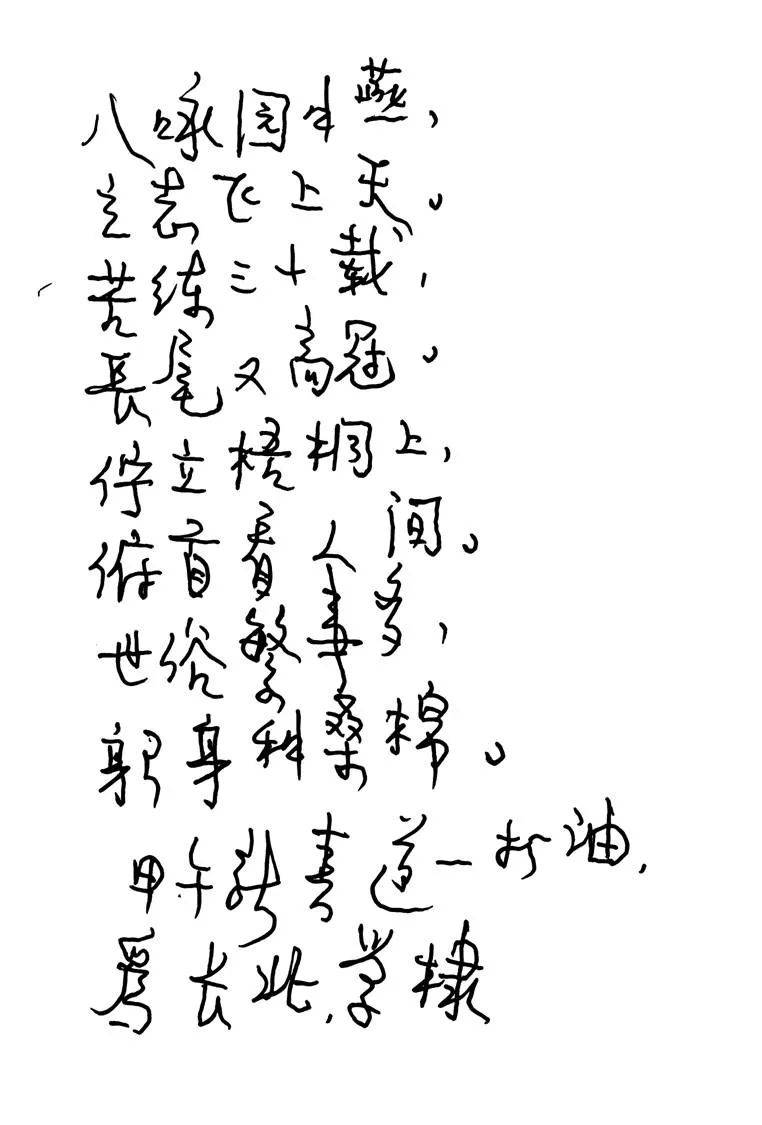 八咏园中燕，
立志飞上天。
苦练三十载，
長尾又高冠。
佇立梧桐上，
俯首看人间。
世俗繁事多，
躬身种桑棉。
甲午新春道一打油，
為长北学棣